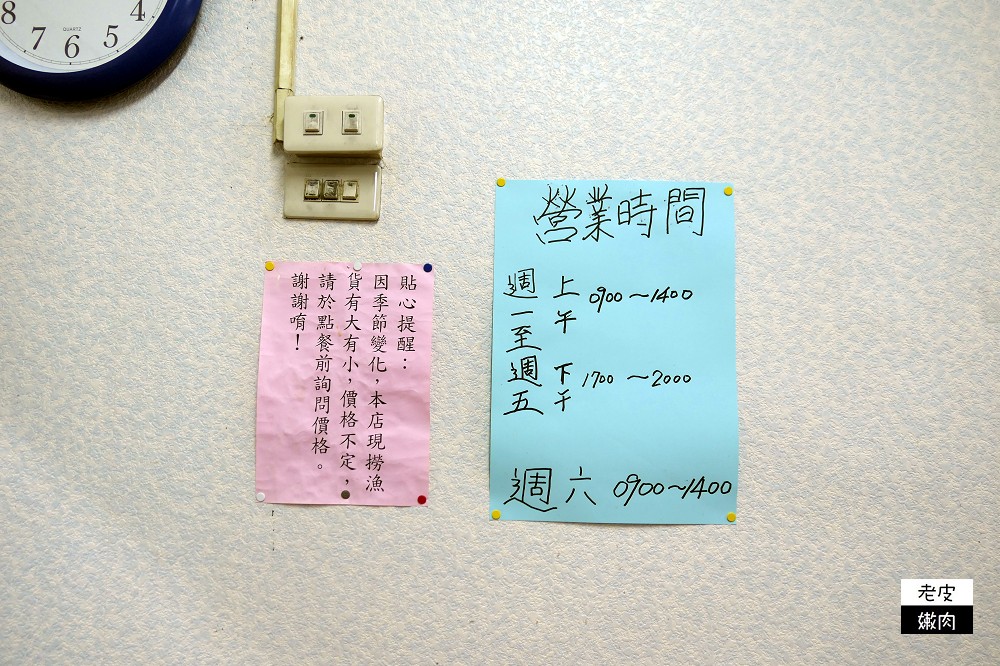 8 7 6 5 4
QUARTZ
貼心提醒：
因季節變化，本店現撈漁
貨有大有小，價格不定，
請於點餐前詢問價格。
謝謝唷！
營業時間
週一至週五
上午 0900～1400
下午 1700～2000
週六 0900～1400
老皮
嫩肉